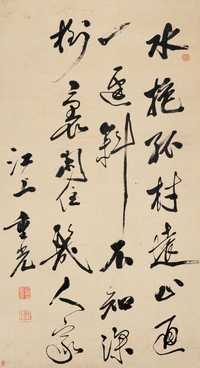 水抱孤村遠山通
一逕斜不知深
樹裏還住幾人家
江上重光